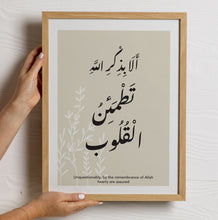 أَلَا بِذِكْرِ اللَّهِ
تَطْمَئِنُّ
الْقُلُوب
Unquestionably, by the remembrance of Allah
hearts are assured